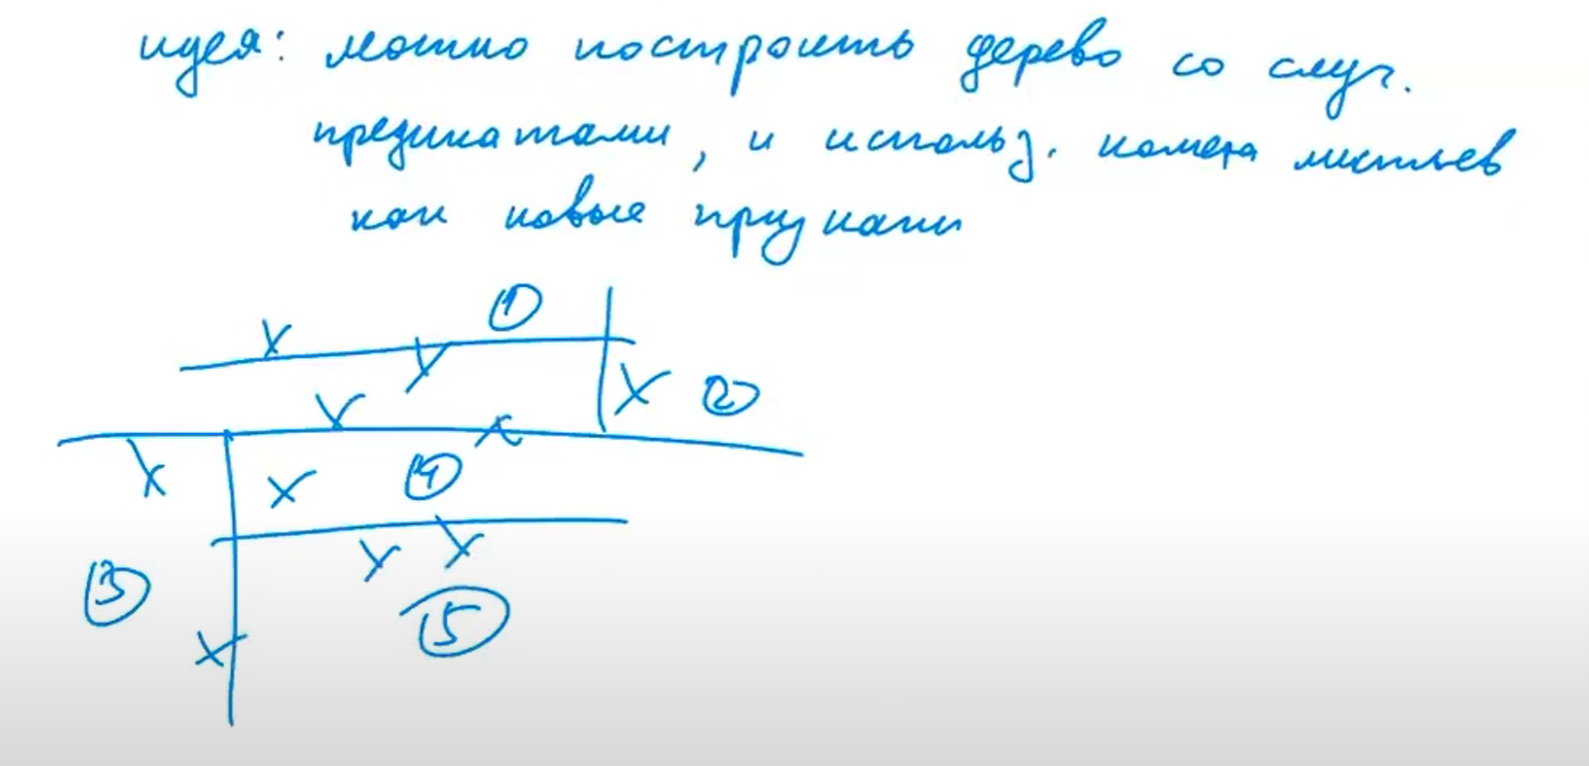 идея: можно построить дерево со случ.
предикатами, и использ. номера листьев
как новые признаки
1
2
4
3
5